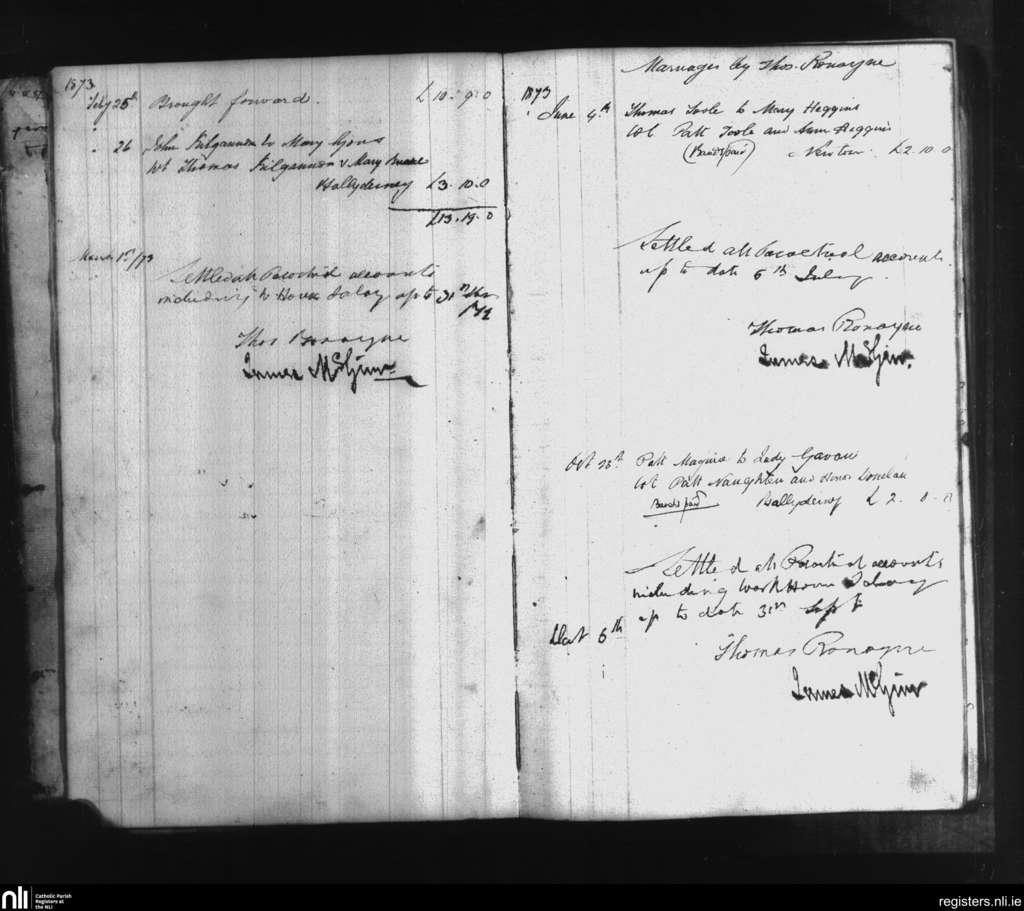 1873
Feby 25th Brought forward. £10.9.0
" 26 John Kilgannon to Mary Lyons
wt Thomas Kilgannon & Mary
Ballyderney £3.10.0
£13.19.0
March 1st/73
Settled all Parochial accounts
including W House Salary up to 31st
Thos Ronayne
James McGinn
Marriages by Thos. Ronayne
1873
" June 4th Thomas Toole to Mary Heggins
wt Patt Toole and Ann Heggins
(Bands paid) Newtown. £2.10.0
Settled all Parochial accounts
up to date 5th July
Thomas Ronayne
James McGinn.
Oct 25th Patt Maguire to Judy Gavan
wt Patt Naughten and Honor Donelan
Bands paid Ballyderney £2.0.0
Settled all Parochial accounts
including Work House Salary
up to date 31st Sept
6th
Thomas Ronayne
James McGinn
nli
Catholic Parish
Registers at
the NLI
registers.nli.ie